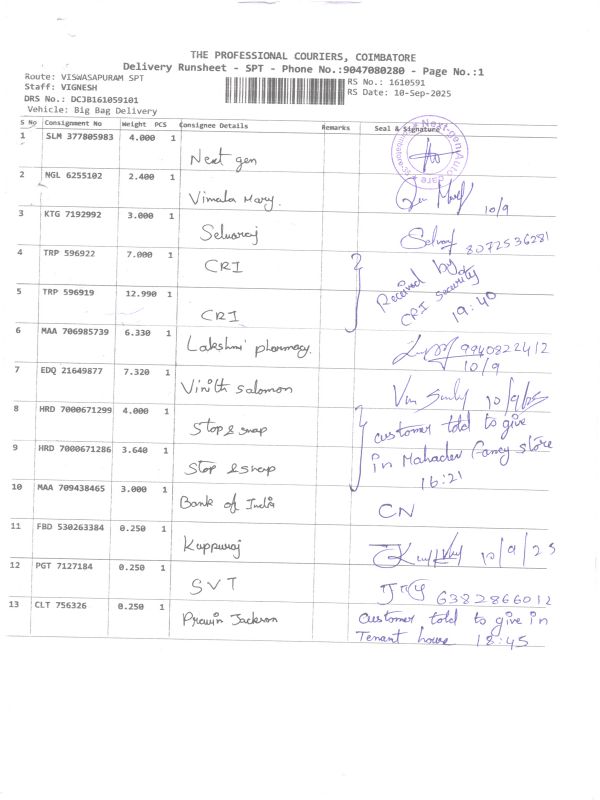 THE PROFESSIONAL COURIERS, COIMBATORE
Delivery Runsheet - SPT - Phone No.:9047080280 - Page No.:1
Route: VISWASAPURAM SPT
Staff: VIGNESH
DRS No.: DCJB161059101
Vehicle: Big Bag Delivery
RS No.: 1610591
RS Date: 10-Sep-2025
S No Consignment No Weight PCS Consignee Details Remarks Seal & Signature
1 SLM 377805983 4.000 1 Next gen
2 NGL 6255102 2.400 1 Vimala Mary. 10/9
3 KTG 7192992 3.000 1 Selvaraj Selvaraj 8072536281
4 TRP 596922 7.000 1 CRI
5 TRP 596919 12.990 1 CRI
Received by
CRI Security
19:40
6 MAA 706985739 6.330 1 Lakshmi pharmacy. 9940822412
10/9
7 EDQ 21649877 7.320 1 Vinith salomon 10/9/25
8 HRD 7000671299 4.000 1 Stop & snap
9 HRD 7000671286 3.640 1 Stop & snap
customer told to give
in Mahadev fancy store
16:21
10 MAA 709438465 3.000 1 Bank of India CN
11 FBD 530263384 0.250 1 Kuppuraj 10/9/25
12 PGT 7127184 0.250 1 SVT 6382866012
13 CLT 756326 0.250 1 Pravin Jackson Customer told to give in
Tenant house 18:45